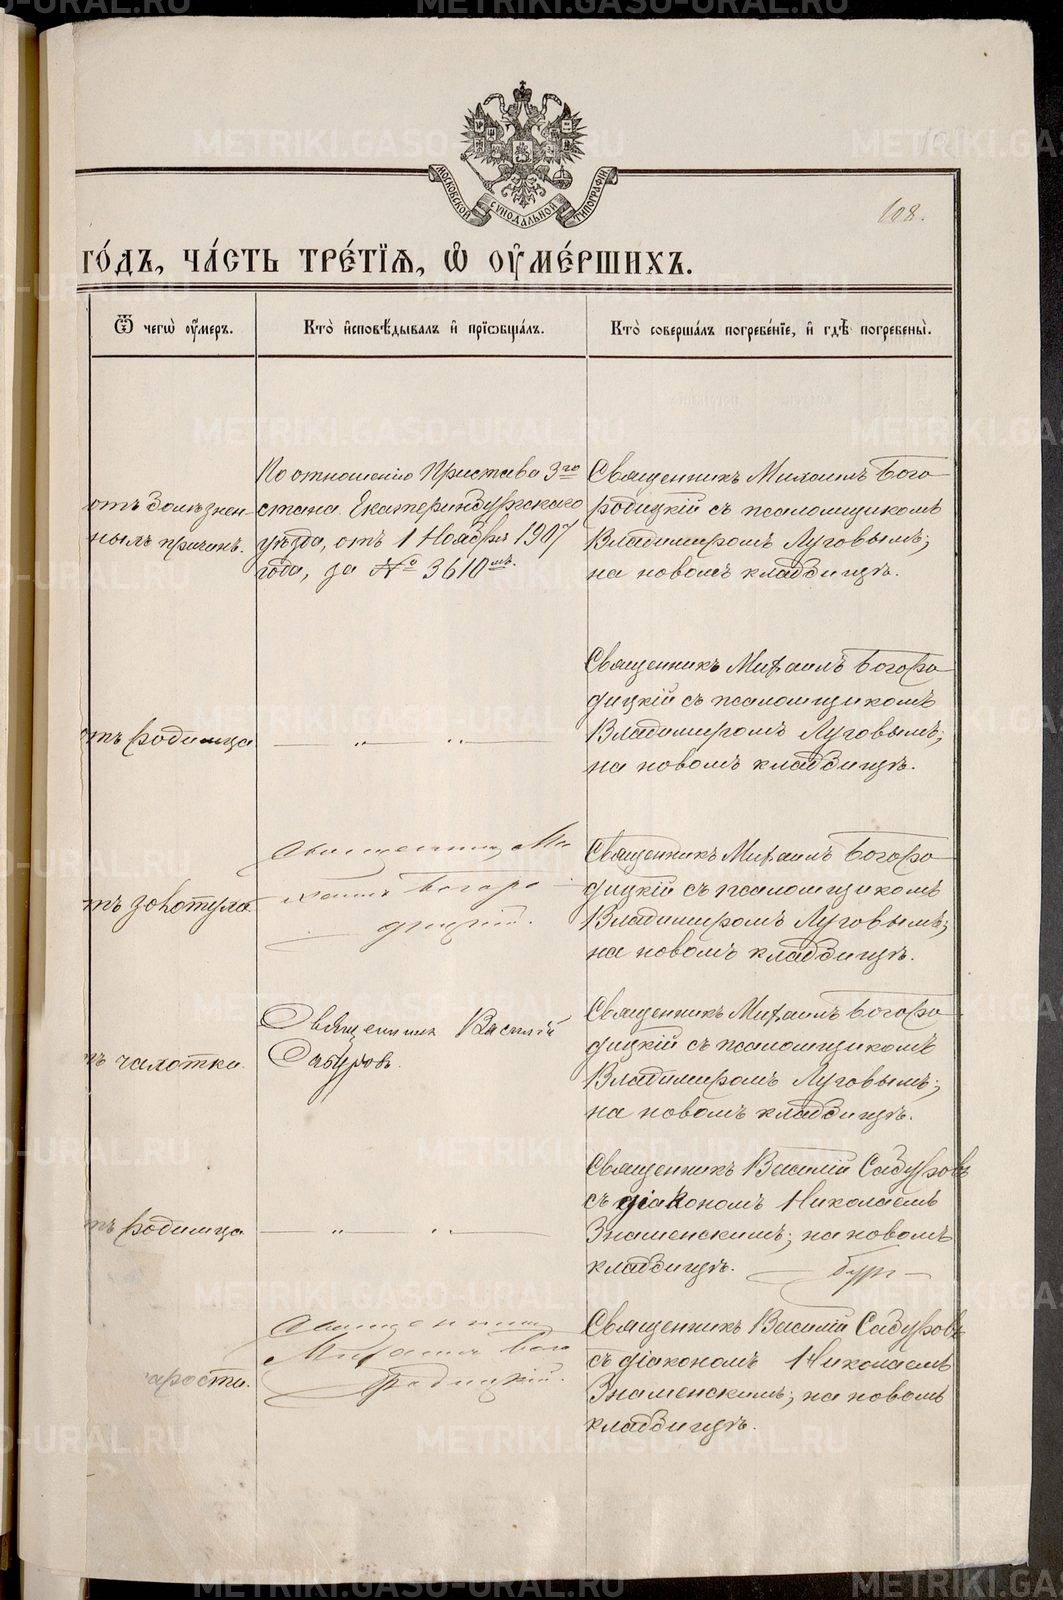 МОСКОВСКОЙ СУНОДАЛЬНОЙ ТИПОГРАФІИ
108.
ГО́ДЪ, ЧА́СТЬ ТРЕ́ТІѦ, Ѡ҆ ОУ҆МЕ́РШИХЪ.
Ѿ чегѡ̀ оу҆́меръ.
Кто̀ и҆сповѣ́дывалъ и҆ прїѡбща́лъ.
Кто̀ соверша́лъ погребе́нїе, и҆ гдѣ̀ погребены̀.
отъ болѣзнен-
ныхъ причинъ.
По отношенію Пристава 3го
стана Екатеринбургскаго
уѣзда, отъ 1 Ноября 1907
года, за № 3610мъ.
Священникъ Михаилъ Бого
родицкій съ псаломщикомъ
Владимиромъ Луговымъ;
на новомъ кладбищѣ.
отъ родимца
— „ — „ —
Священникъ Михаилъ Богоро
дицкій съ псаломщикомъ
Владимиромъ Луговымъ;
на новомъ кладбищѣ.
тъ золотухи
Священникъ Ми
хаилъ Богоро
дицкій.
Священникъ Михаилъ Богоро
дицкій съ псаломщикомъ
Владимиромъ Луговымъ;
на новомъ кладбищѣ.
тъ чахотки.
Священникъ Василій
Сабуровъ.
Священникъ Михаилъ Богоро
дицкій съ псаломщикомъ
Владимиромъ Луговымъ;
на новомъ кладбищѣ.
тъ родимца
— „ — „ —
Священникъ Василій Сабуровъ
съ діакономъ Николаемъ
Знаменскимъ; на новомъ
кладбищѣ.
арости.
Священникъ
Михаилъ Бого
родицкій.
Священникъ Василій Сабуровъ
съ діакономъ Николаемъ
Знаменскимъ; на новомъ
кладбищѣ.
METRIKI.GASO-URAL.RU